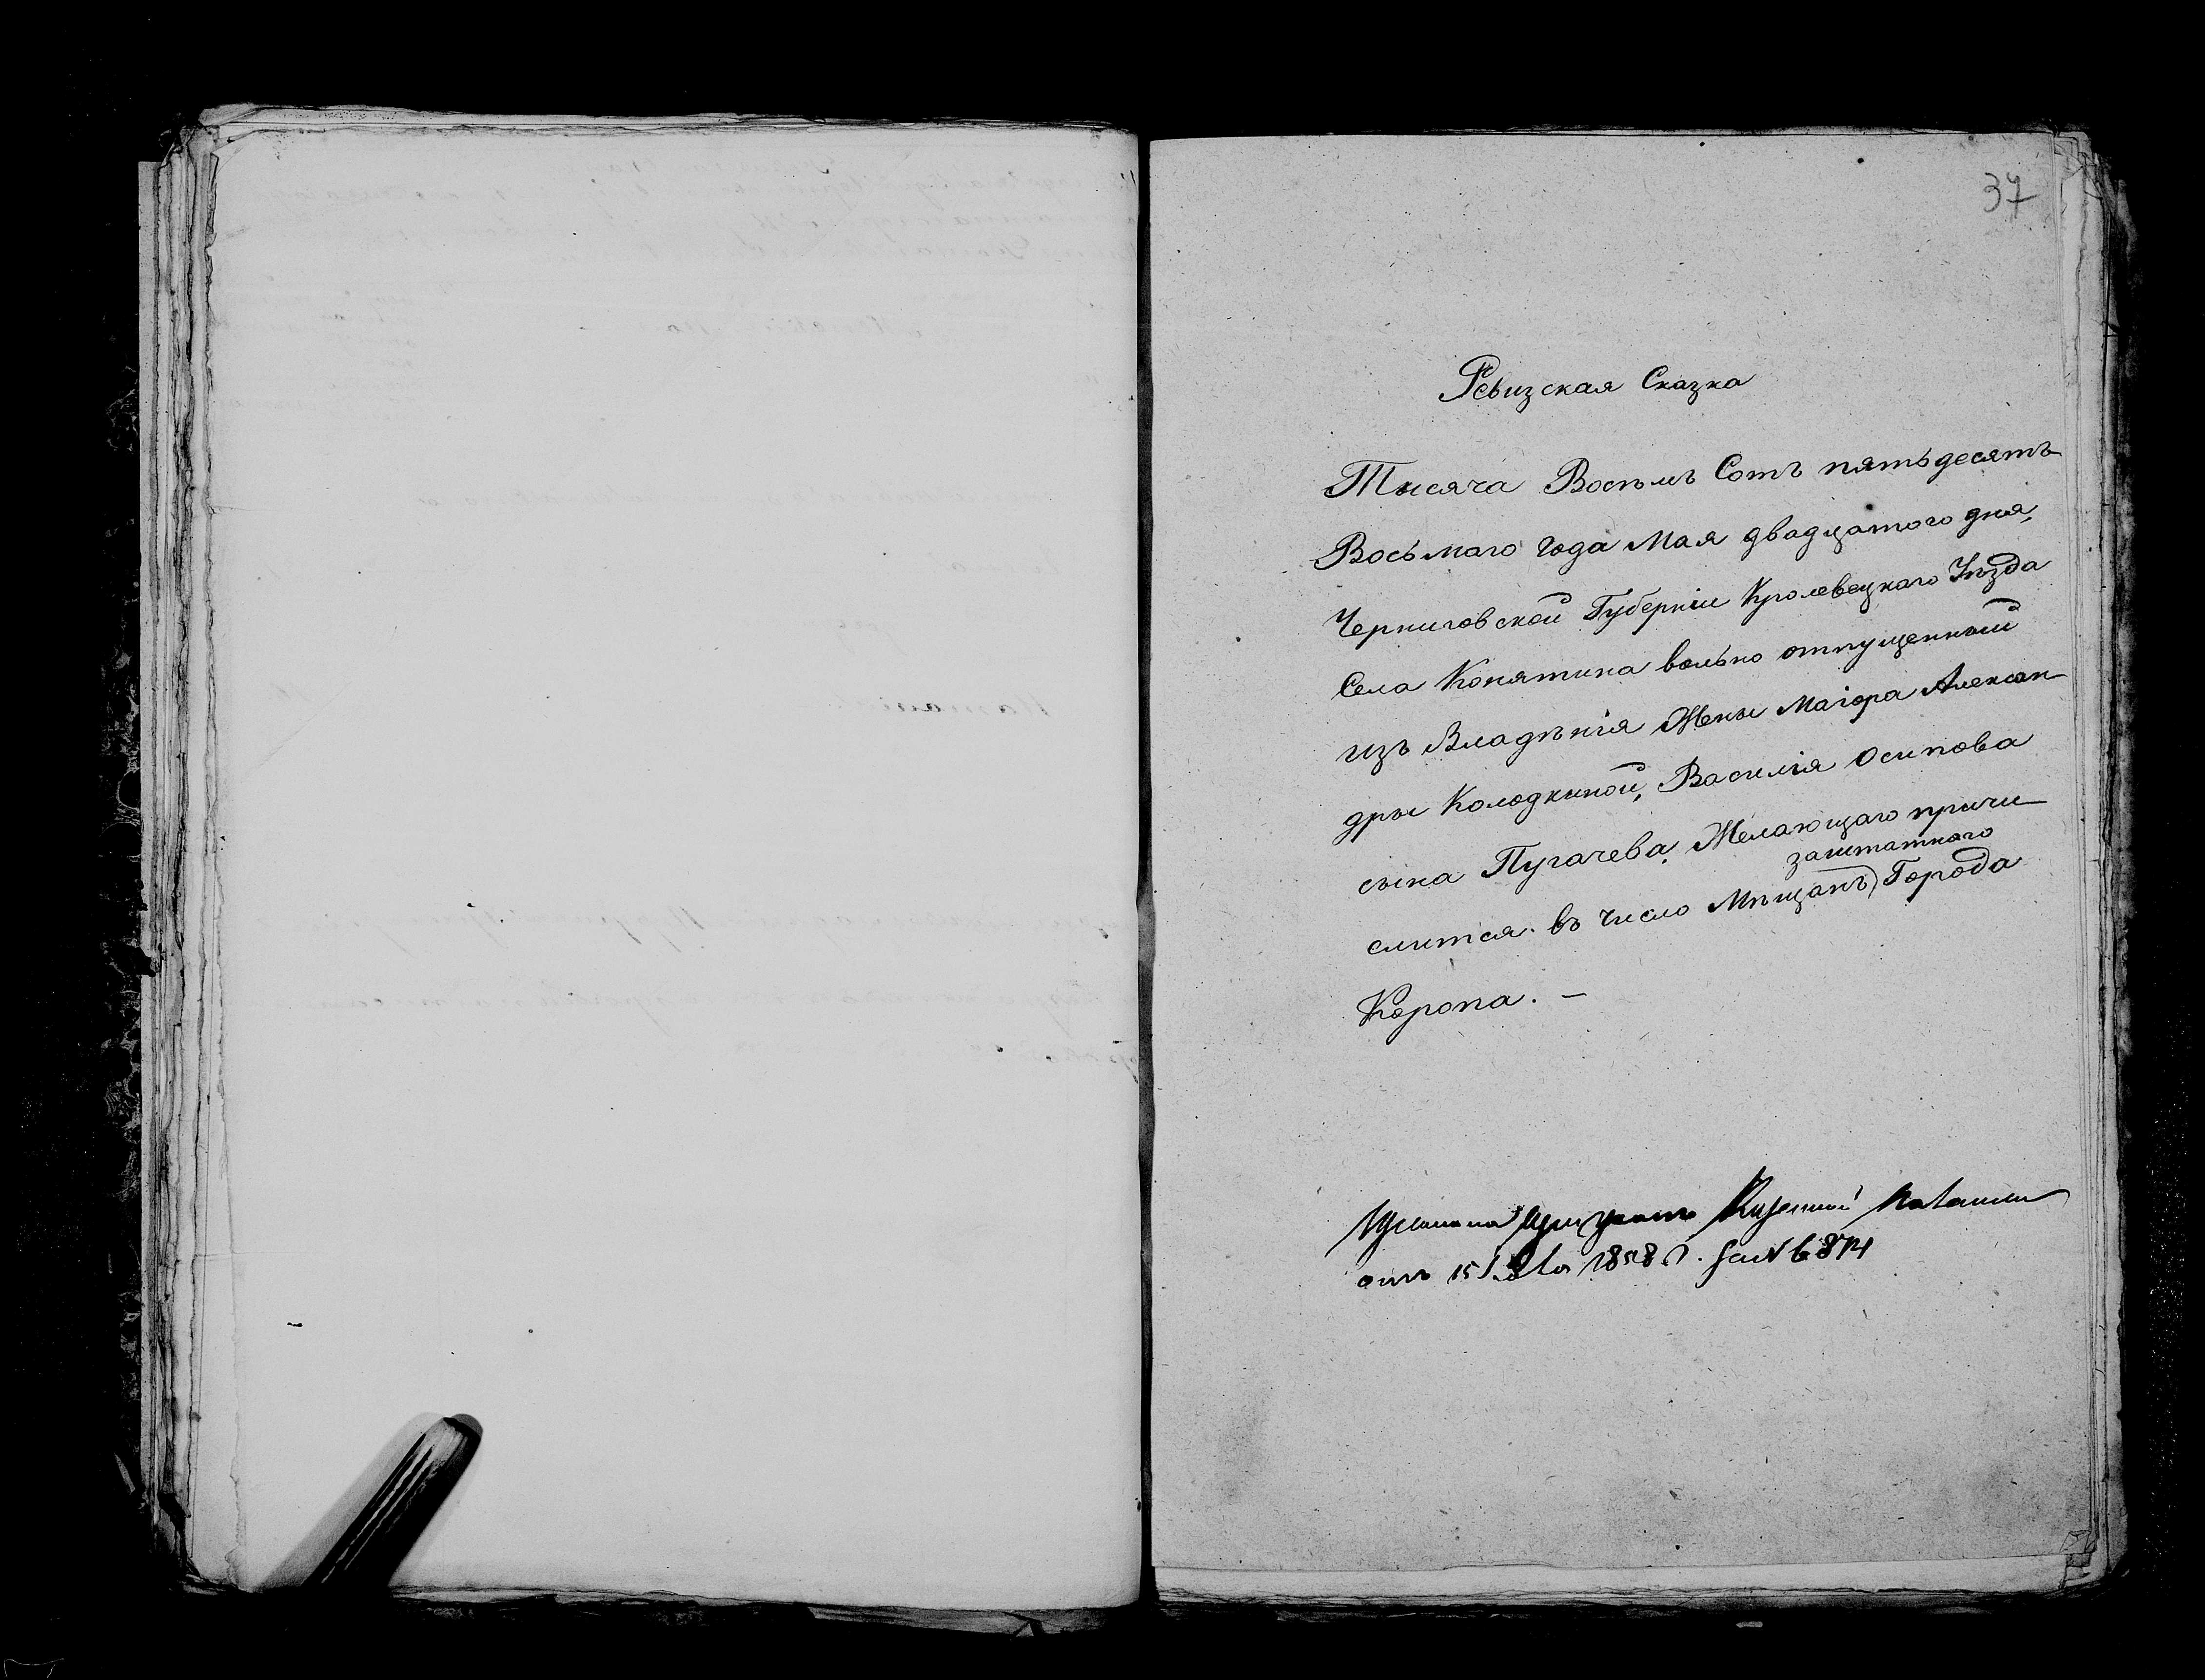 37
Ревизская Сказка
Тысяча Восемь Сотъ пятьдесятъ
Восьмаго года Мая двадцатого дня,
Черниговской Губерніи Кролевецкаго Уѣзда
Села Конятина вольно отпущенный
изъ Владѣнія Жены Маіора Алексан-
дры Колодкиной, Василія Осипова
сына Пугачева, Желающаго причи-
слится въ число Мѣщанъ заштатного Города
Коропа. –
Казенной Палаты
отъ 15 1858 г. за № 6874